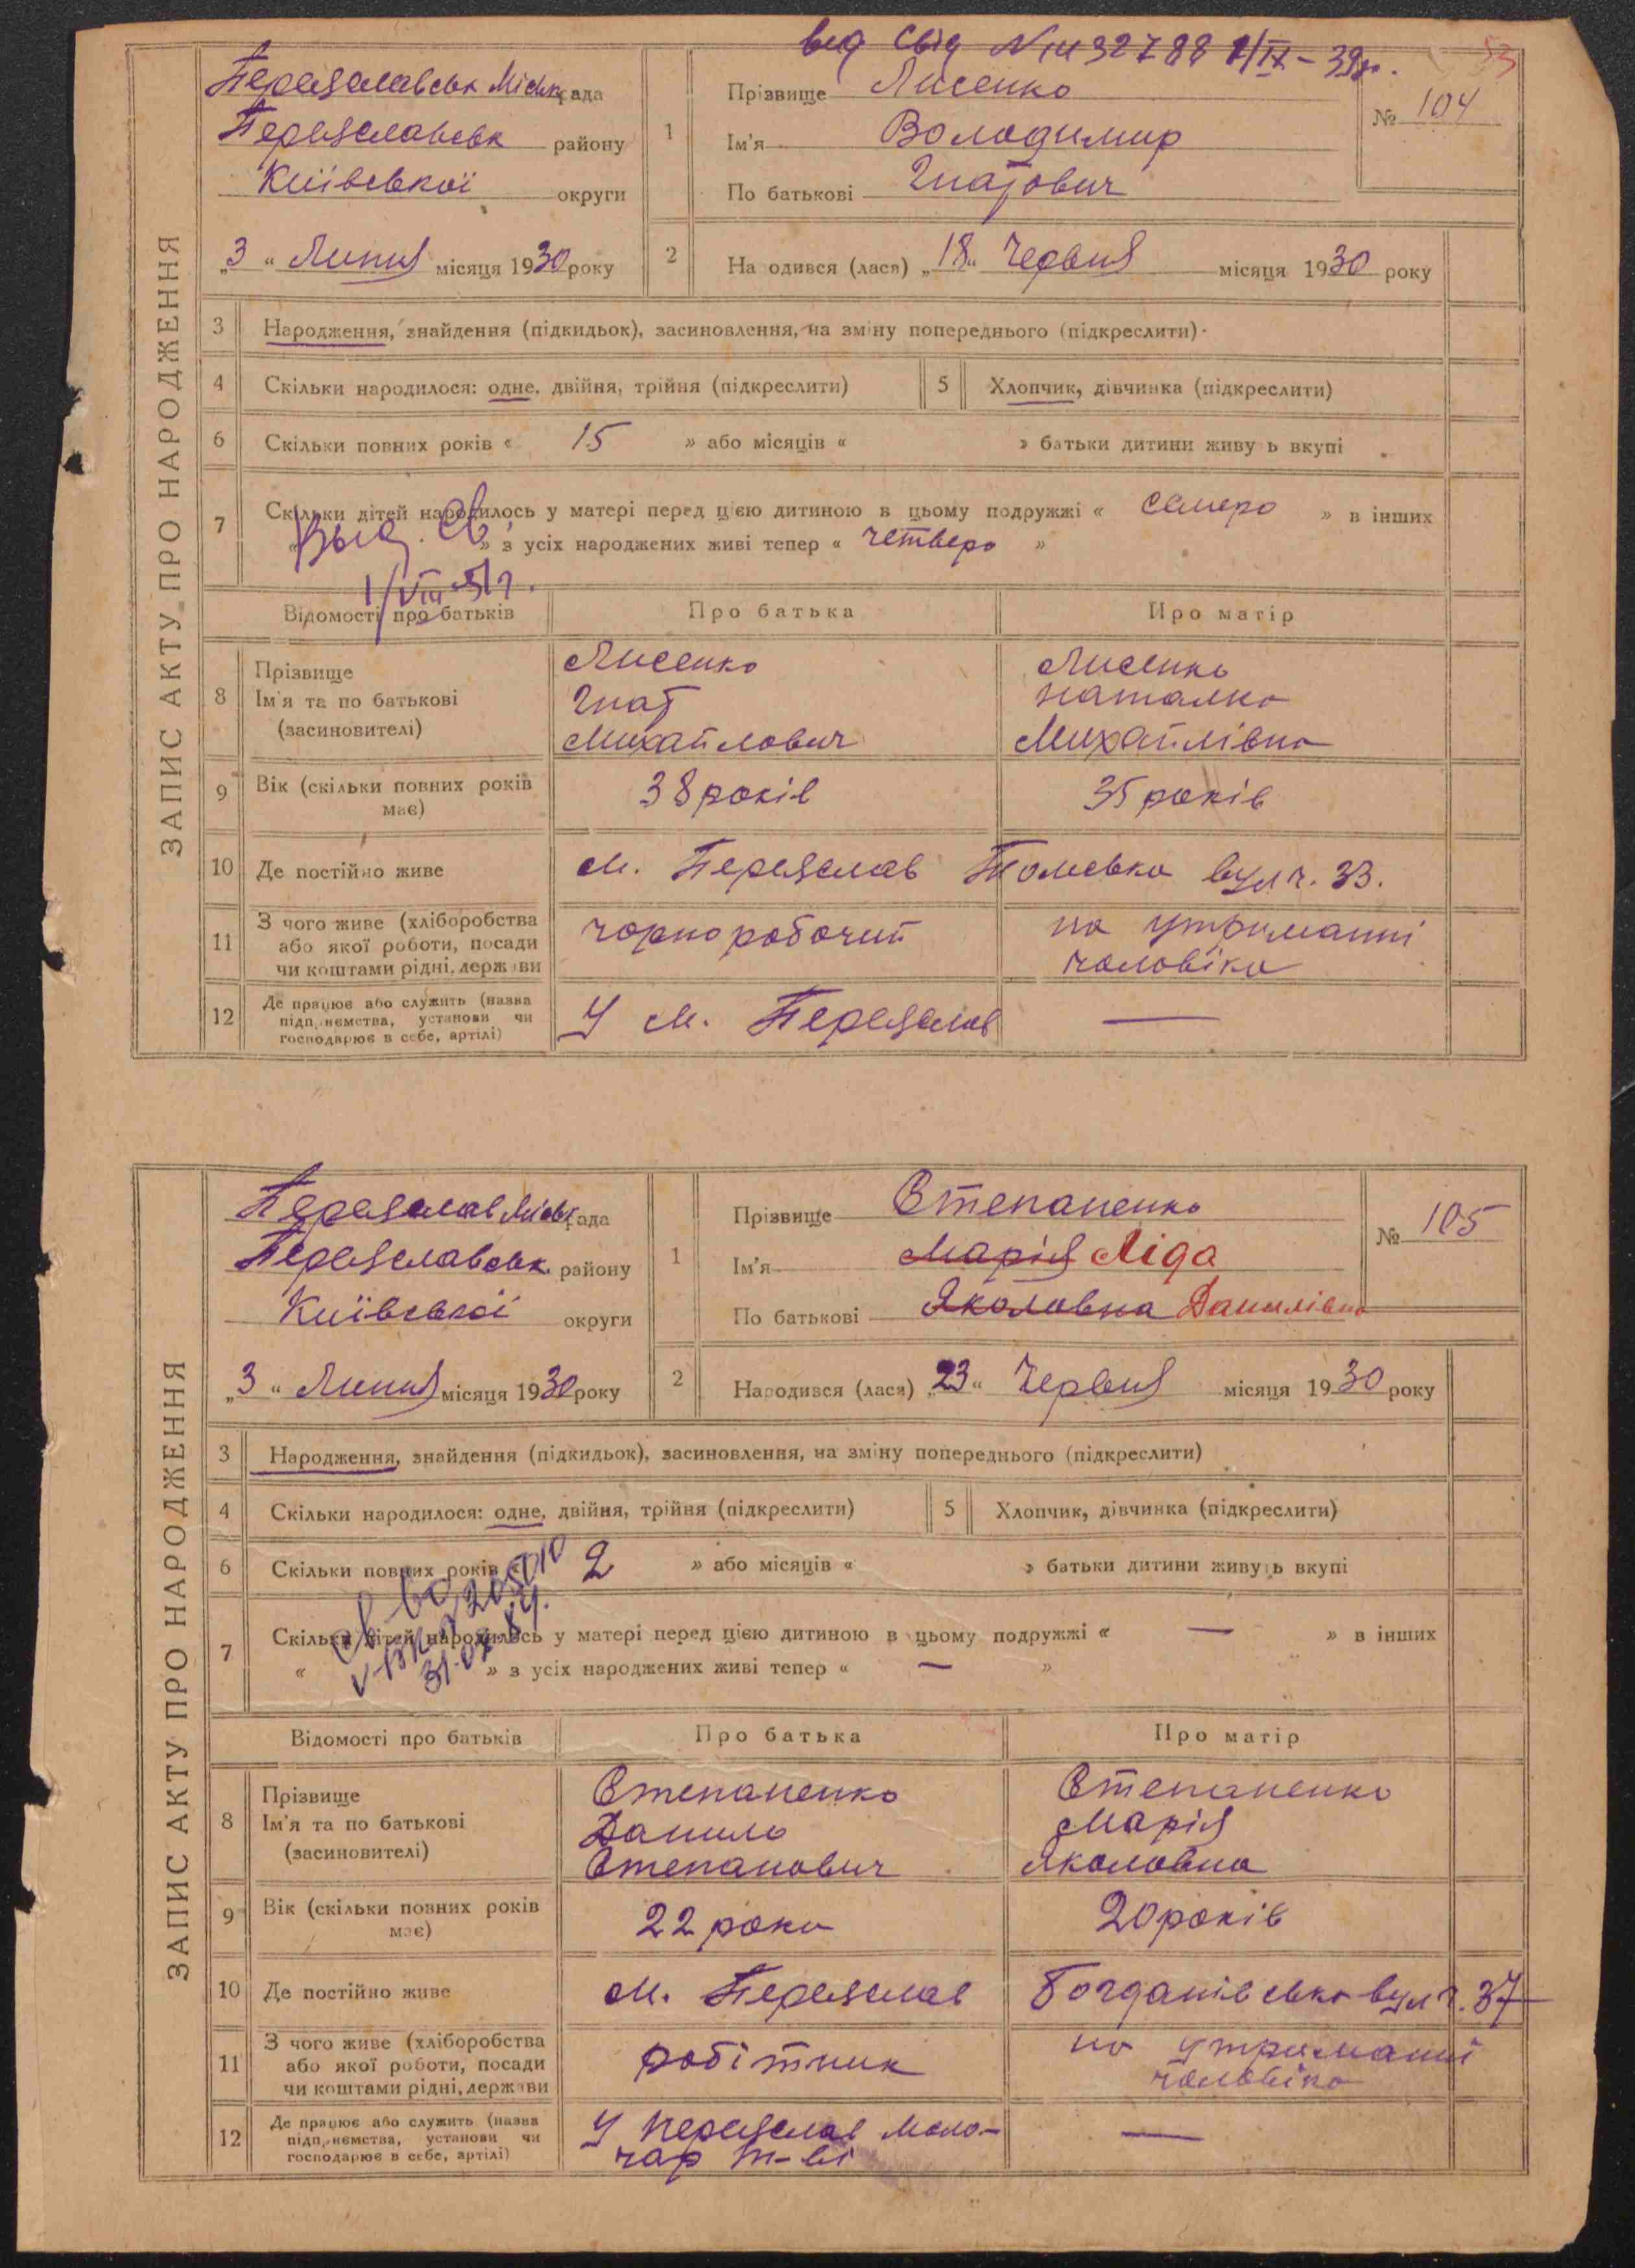 53
вид Свід № 1432788 1/IX-39р.
ЗАПИС АКТУ ПРО НАРОДЖЕННЯ
Переяславськ Міськрада
Переяславськ району
Київської округи
„3“ Липня місяця 1930 року
1
Прізвище Лисенко
Ім'я Володимир
По батькові Гнатович
№ 104
2 Народився (лася) „18“ Червня місяця 1930 року
3 Народження, знайдення (підкидьок), засиновлення, на зміну попереднього (підкреслити)
4 Скільки народилося: одне, двійня, трійня (підкреслити) 5 Хлопчик, дівчинка (підкреслити)
6 Скільки повних років « 15 » або місяців « » батьки дитини живуть вкупі
7 Скільки дітей народилось у матері перед цією дитиною в цьому подружжі « семеро » в інших
« » з усіх народжених живі тепер « четверо »
Выд. Св.
1/VIII-51г.
Відомості про батьків Про батька Про матір
8 Прізвище Лисенко Лисенко
Ім'я та по батькові Гнат Наталка
(засиновителі) Михайлович Михайлівна
9 Вік (скільки повних років має) 38 років 35 років
10 Де постійно живе м. Переяслав вул. ч. 33.
11 З чого живе (хліборобства чорноробочий на утриманні
або якої роботи, посади чоловіка
чи коштами рідні, держави
12 Де працює або служить (назва У м. Переяслав —
підприємства, установи чи
господарює в себе, артілі)
ЗАПИС АКТУ ПРО НАРОДЖЕННЯ
Переяслав Міськрада
Переяславськ. району
Київської округи
„3“ Липня місяця 1930 року
1
Прізвище Степаненко
Ім'я Марія Ліда
По батькові Яколовна Данилівна
№ 105
2 Народився (лася) „23“ Червня місяця 1930 року
3 Народження, знайдення (підкидьок), засиновлення, на зміну попереднього (підкреслити)
4 Скільки народилося: одне, двійня, трійня (підкреслити) 5 Хлопчик, дівчинка (підкреслити)
6 Скільки повних років « 2 » або місяців « » батьки дитини живуть вкупі
7 Скільки дітей народилось у матері перед цією дитиною в цьому подружжі « — » в інших
« » з усіх народжених живі тепер « — »
Відомості про батьків Про батька Про матір
8 Прізвище Степаненко Степаненко
Ім'я та по батькові Данило Марія
(засиновителі) Степанович Яколовна
9 Вік (скільки повних років має) 22 роки 20 років
10 Де постійно живе м. Переяслав Богданівська вул ч. 37
11 З чого живе (хліборобства робітник на утриманні
або якої роботи, посади чоловіка
чи коштами рідні, держави
12 Де працює або служить (назва У Переяслав Моло- —
підприємства, установи чи чар т-ві
господарює в себе, артілі)